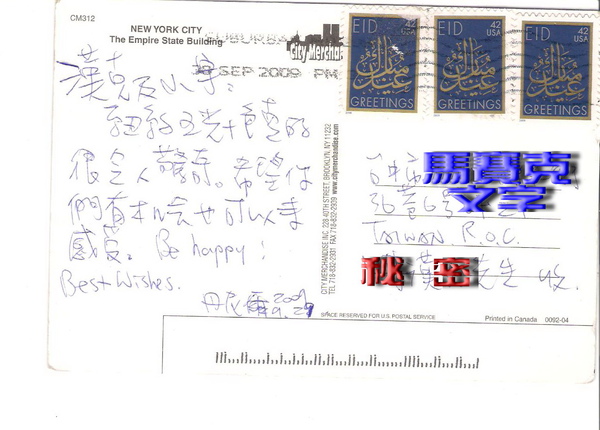 CM312
NEW YORK CITY
The Empire State Building
SUBURBA
City Merchandise
SEP 2009 PM
EID 42 USA GREETINGS
EID 42 USA GREETINGS
EID 42 USA GREETINGS
عيد مبارك
عيد مبارك
عيد مبارك
漢克及小車:
紐約之光十色真的
很令人驚奇。希望你
們有機會也可以來
感受。Be happy!
Best Wishes.
2009
9.27
CITY MERCHANDISE INC. 228 40TH STREET, BROOKLYN, NY 11232
TEL 718-832-2931 FAX 718-832-2939 www.citymerchandise.com
馬賽克
文字
TAIWAN R.O.C.
秘密
先生 收
SPACE RESERVED FOR U.S. POSTAL SERVICE
Printed in Canada 0092-04